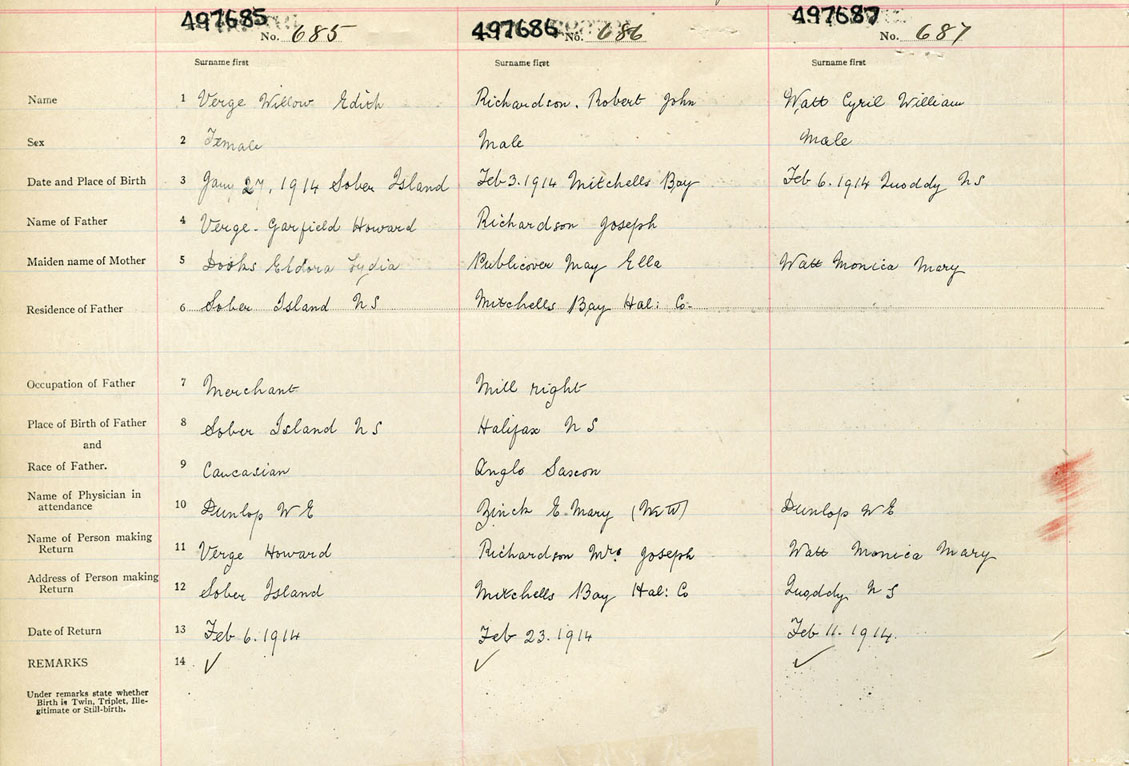 497685 497686 497687
No. 685 No. 686 No. 687
Surname first Surname first Surname first
Name 1 Verge Willow Edith Richardson. Robert John Watt Cyril William
Sex 2 Female Male Male
Date and Place of Birth 3 Jany 27, 1914 Sober Island Feb 3. 1914 Mitchells Bay Feb 6. 1914 Quoddy NS
Name of Father 4 Verge - Garfield Howard Richardson Joseph
Maiden name of Mother 5 Eldora Lydia Publicover May Ella Watt Monica Mary
Residence of Father 6 Sober Island NS Mitchells Bay Hal: Co.
Occupation of Father 7 Merchant Mill right
Place of Birth of Father 8 Sober Island NS Halifax NS
and
Race of Father. 9 Caucasian Anglo Saxon
Name of Physician in
attendance 10 Dunlop W E E. Mary Dunlop W E
Name of Person making
Return 11 Verge Howard Richardson Mrs Joseph Watt Monica Mary
Address of Person making
Return 12 Sober Island Mitchells Bay Hal: Co Quoddy NS
Date of Return 13 Feb 6. 1914 Feb 23. 1914 Feb 11. 1914.
REMARKS 14 ✓ ✓ ✓
Under remarks state whether
Birth is Twin, Triplet, Ille-
gitimate or Still-birth.